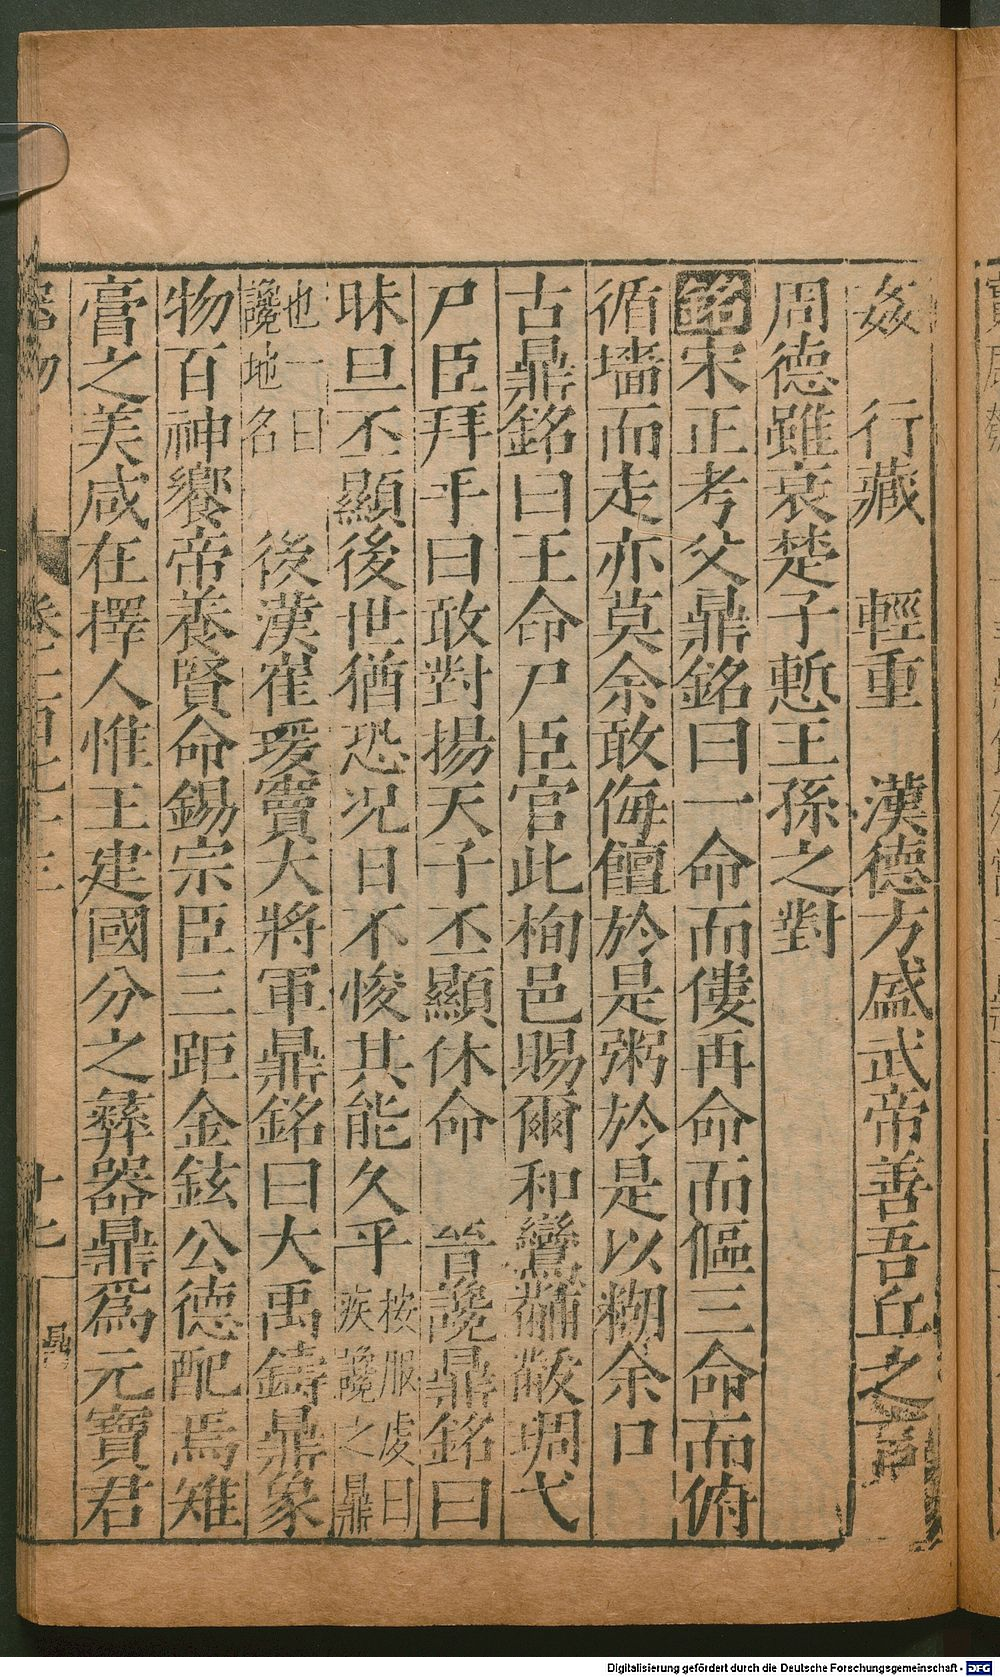 姦　行藏　輕重　漢德方盛武帝善吾丘之言
周德雖衰楚子慙王孫之對
銘宋正考父鼎銘曰一命而僂再命而傴三命而俯
循墻而走亦莫余敢侮饘於是粥於是以糊余口
古鼎銘曰王命尸臣官此栒邑賜爾和鸞黼黻琱弋
尸臣拜手曰敢對揚天子丕顯休命　晉讒鼎銘曰
昧旦丕顯後世猶恐況日不悛其能久乎按服虔曰疾讒之鼎
也一曰讒地名　後漢崔瑗竇大將軍鼎銘曰大禹鑄鼎象
物百神饗帝養賢命錫宗臣三距金鉉公德配焉雉
膏之美咸在擇人惟王建國分之彝器鼎爲元寶君
十七　鼎
Digitalisierung gefördert durch die Deutsche Forschungsgemeinschaft - DFG